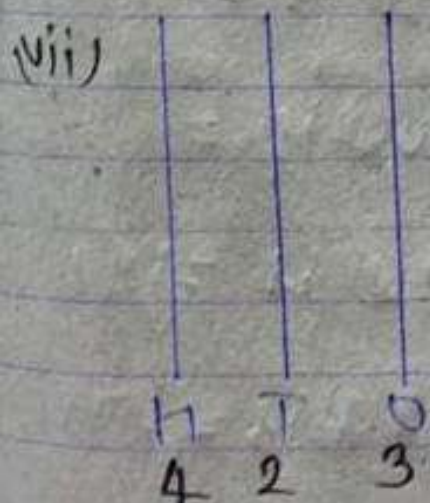 (vii)
H T O
4 2 3